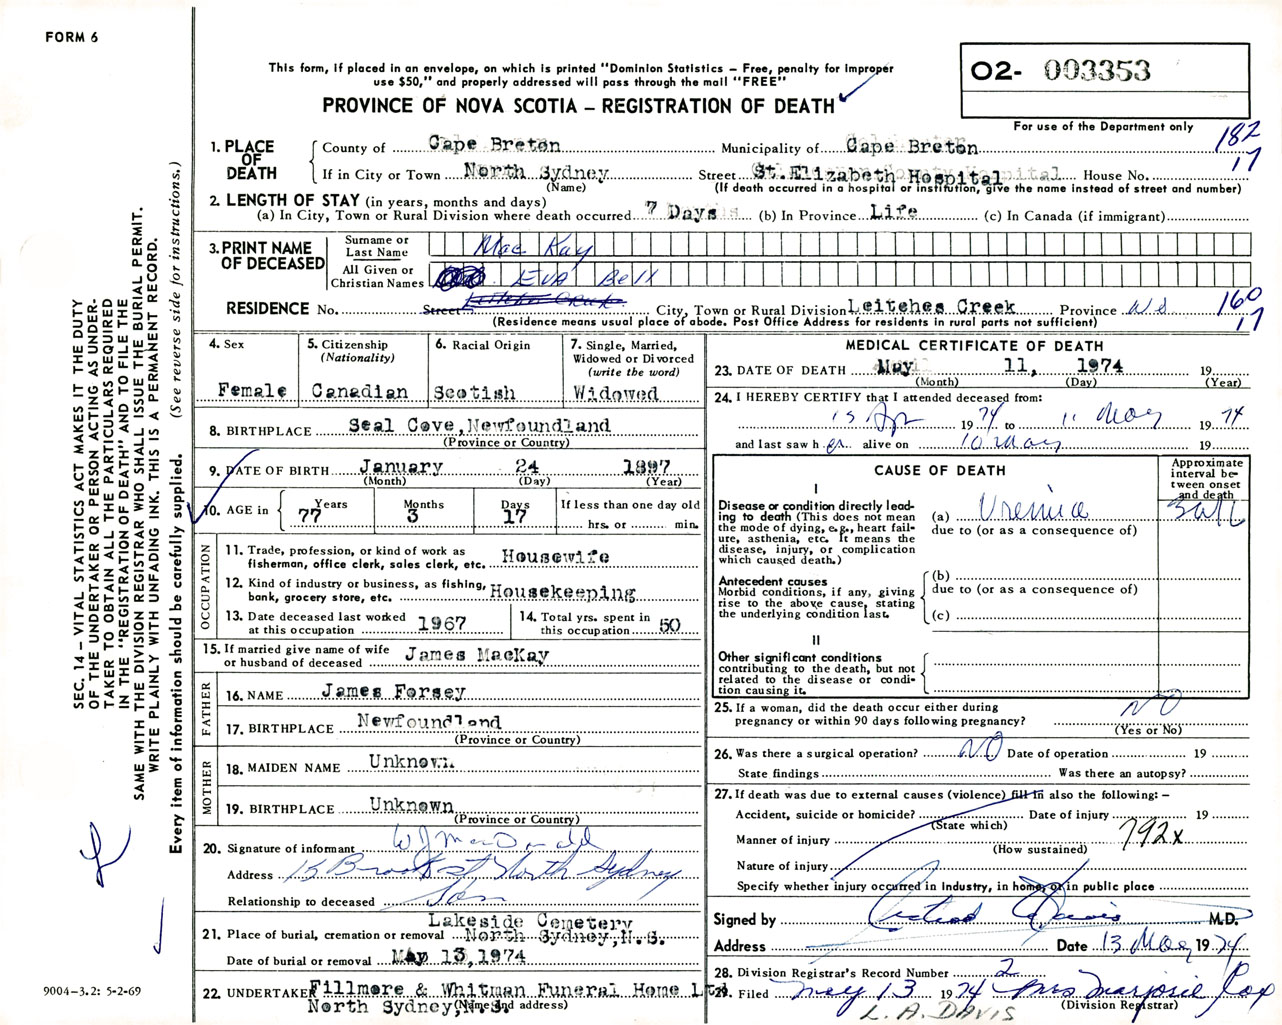 FORM 6
This form, if placed in an envelope, on which is printed "Dominion Statistics – Free, penalty for improper
use $50," and properly addressed will pass through the mail "FREE"
PROVINCE OF NOVA SCOTIA – REGISTRATION OF DEATH
02- 003353
For use of the Department only
182
17
1. PLACE OF DEATH
County of Cape Breton Municipality of Cape Breton
If in City or Town North Sydney Street St. Elizabeth Hospital House No.
(Name) (If death occurred in a hospital or institution, give the name instead of street and number)
2. LENGTH OF STAY (in years, months and days)
(a) In City, Town or Rural Division where death occurred 7 Days (b) In Province Life (c) In Canada (if immigrant)
3. PRINT NAME OF DECEASED
Surname or Last Name Mac Kay
All Given or Christian Names EVA Bell
RESIDENCE No. Street City, Town or Rural Division Leitches Creek Province NS
160
17
(Residence means usual place of abode. Post Office Address for residents in rural parts not sufficient)
4. Sex Female
5. Citizenship (Nationality) Canadian
6. Racial Origin Scotish
7. Single, Married, Widowed or Divorced (write the word) Widowed
8. BIRTHPLACE Seal Cove, Newfoundland
(Province or Country)
9. DATE OF BIRTH January 24 1897
(Month) (Day) (Year)
10. AGE in Years 77 Months 3 Days 17 If less than one day old
hrs. or min.
OCCUPATION
11. Trade, profession, or kind of work as
fisherman, office clerk, sales clerk, etc. Housewife
12. Kind of industry or business, as fishing,
bank, grocery store, etc. Housekeeping
13. Date deceased last worked
at this occupation 1967
14. Total yrs. spent in
this occupation 50
15. If married give name of wife
or husband of deceased James MacKay
FATHER
16. NAME James Forsey
17. BIRTHPLACE Newfoundland
(Province or Country)
MOTHER
18. MAIDEN NAME Unknown
19. BIRTHPLACE Unknown
(Province or Country)
20. Signature of informant W J MacDonald
Address 15 Brook st North Sydney
Relationship to deceased Son
Lakeside Cemetery
21. Place of burial, cremation or removal North Sydney, N.S.
Date of burial or removal May 13, 1974
22. UNDERTAKER Fillmore & Whitman Funeral Home Ltd
North Sydney, N.S. (Name and address)
MEDICAL CERTIFICATE OF DEATH
23. DATE OF DEATH May 11, 1974 19
(Month) (Day) (Year)
24. I HEREBY CERTIFY that I attended deceased from:
15 Apr 1974 to 11 May 1974
and last saw her alive on 10 May 19
CAUSE OF DEATH
Approximate interval between onset and death
I
Disease or condition directly lead-
ing to death (This does not mean
the mode of dying, e.g., heart fail-
ure, asthenia, etc. It means the
disease, injury, or complication
which caused death.)
(a) Uremia
due to (or as a consequence of)
Antecedent causes
Morbid conditions, if any, giving
rise to the above cause, stating
the underlying condition last.
(b)
due to (or as a consequence of)
(c)
II
Other significant conditions
contributing to the death, but not
related to the disease or condi-
tion causing it.
25. If a woman, did the death occur either during
pregnancy or within 90 days following pregnancy? NO
(Yes or No)
26. Was there a surgical operation? NO Date of operation 19
State findings Was there an autopsy?
27. If death was due to external causes (violence) fill in also the following: –
Accident, suicide or homicide? Date of injury 19
(State which)
Manner of injury 792x
(How sustained)
Nature of injury
Specify whether injury occurred in Industry, in home, or in public place
Signed by M.D.
Address Date 13 May 1974
28. Division Registrar's Record Number 2
29. Filed May 13 1974 Mrs Marjorie Cox
(Division Registrar)
L. A. DAVIS
SEC. 14 – VITAL STATISTICS ACT MAKES IT THE DUTY
OF THE UNDERTAKER OR PERSON ACTING AS UNDER-
TAKER TO OBTAIN ALL THE PARTICULARS REQUIRED
IN THE "REGISTRATION OF DEATH" AND TO FILE THE
SAME WITH THE DIVISION REGISTRAR WHO SHALL ISSUE THE BURIAL PERMIT.
WRITE PLAINLY WITH UNFADING INK. THIS IS A PERMANENT RECORD.
Every item of information should be carefully supplied. (See reverse side for instructions.)
9004-3.2: 5-2-69